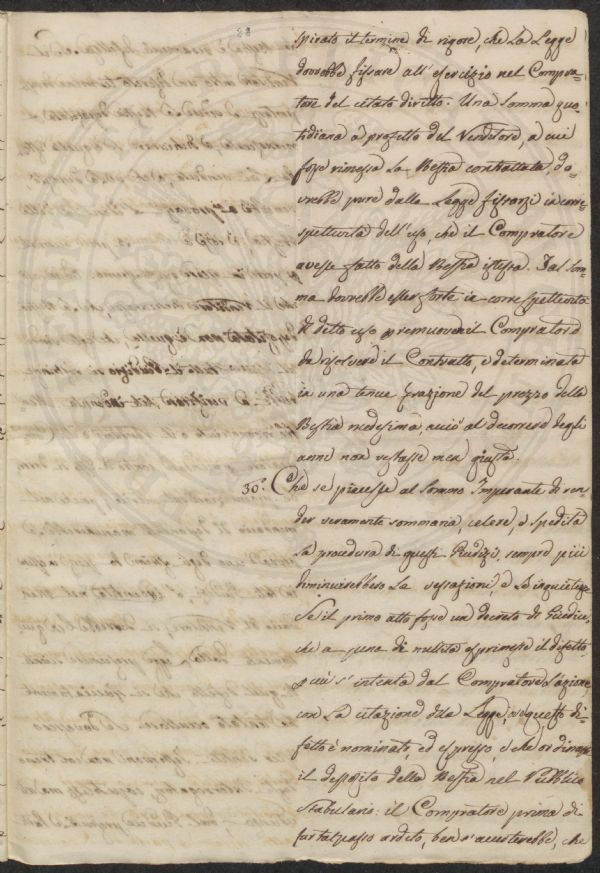 28
spirato il termine di rigore, che la Legge
dovrebbe fissare all'esercizio nel Compra-
tore del citato diritto. Una somma quo-
tidiana a profitto del Venditore, a cui
fosse rimessa la Bestia contrattata, do-
vrebbe pure dalla Legge fissarsi in corre-
spettività dell'uso, che il Compratore
avesse fatto della Bestia istessa. Tal som-
ma dovrebbe esser forte in correspettività
di detto uso premuova il Compratore
da risolvere il Contratto, e determinata
in una tenue frazione del prezzo della
Bestia medesima, acciò al decorrere degli
anni non restasse men giusta.
30.° Che se piacesse al Sommo Imperante di ren-
der veramente sommaria, celere, e spedita
la procedura di questi Giudizj, sempre più
diminuirebbero le vessazioni, e le inquietezze
Se il primo atto fosse un decreto di Giudice,
che a pena di nullità esprimesse il difetto,
p cui s'intenta dal Compratore l'azione
con la citazione della Legge, questo di-
fetto è nominato, ed espresso, e che ordinasse
il deposito della Bestia nel Pubblico
Stabulario: il Compratore prima di
far tal passo ardito, ben s'accerterebbe, che